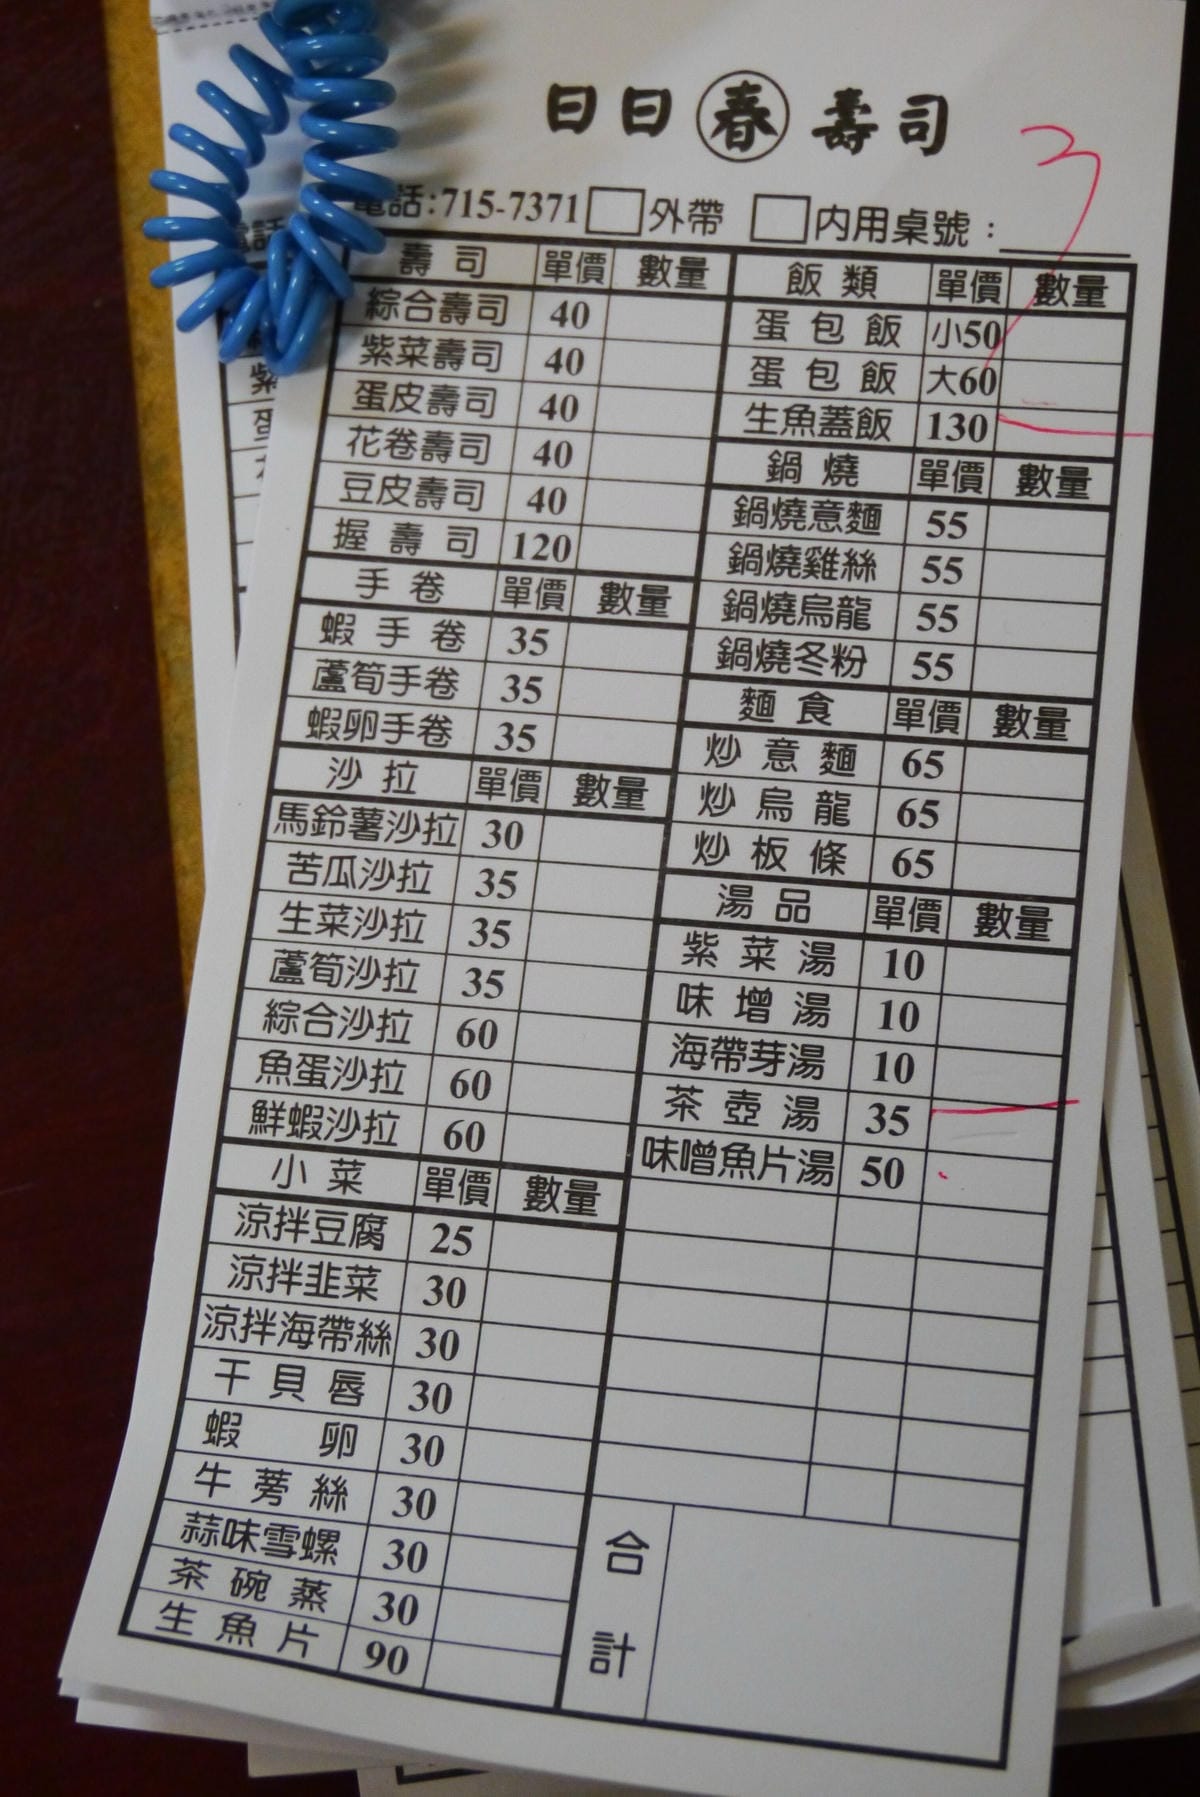 日日春壽司
電話:715-7371 □外帶 □內用桌號:
3
壽司 單價 數量
綜合壽司 40
紫菜壽司 40
蛋皮壽司 40
花卷壽司 40
豆皮壽司 40
握壽司 120
手卷 單價 數量
蝦手卷 35
蘆筍手卷 35
蝦卵手卷 35
沙拉 單價 數量
馬鈴薯沙拉 30
苦瓜沙拉 35
生菜沙拉 35
蘆筍沙拉 35
綜合沙拉 60
魚蛋沙拉 60
鮮蝦沙拉 60
小菜 單價 數量
涼拌豆腐 25
涼拌韭菜 30
涼拌海帶絲 30
干貝唇 30
蝦卵 30
牛蒡絲 30
蒜味雪螺 30
茶碗蒸 30
生魚片 90
飯類 單價 數量
蛋包飯 小50
蛋包飯 大60
生魚蓋飯 130
鍋燒 單價 數量
鍋燒意麵 55
鍋燒雞絲 55
鍋燒烏龍 55
鍋燒冬粉 55
麵食 單價 數量
炒意麵 65
炒烏龍 65
炒板條 65
湯品 單價 數量
紫菜湯 10
味增湯 10
海帶芽湯 10
茶壺湯 35
味噌魚片湯 50
合計